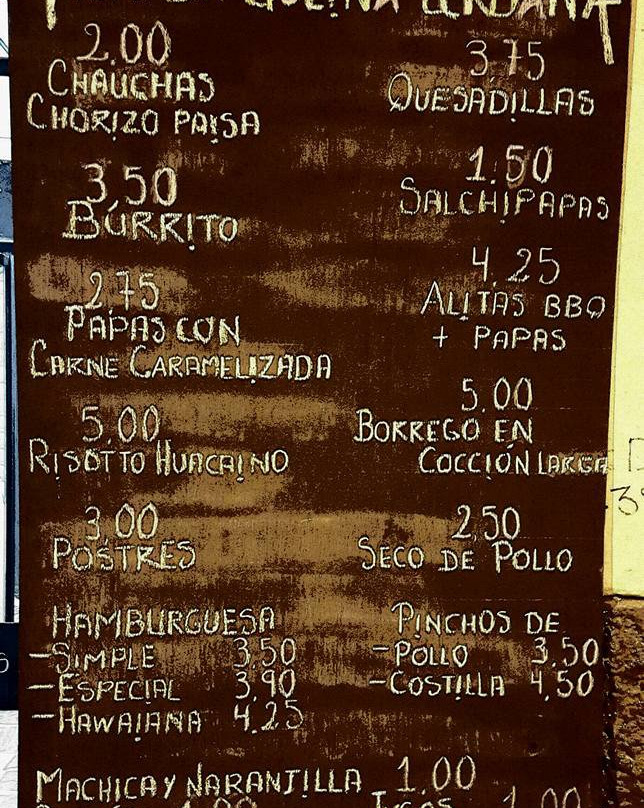 COCINA URBANA
2.00
CHAUCHAS
CHORIZO PAISA
3.50
BURRITO
2.75
PAPAS CON
CARNE CARAMELIZADA
5.00
RISOTTO HUACAINO
3.00
POSTRES
HAMBURGUESA
-SIMPLE 3.50
-ESPECIAL 3.90
-HAWAIANA 4.25
3.75
QUESADILLAS
1.50
SALCHIPAPAS
4.25
ALITAS BBQ
+ PAPAS
5.00
BORREGO EN
COCCIÓN LARGA
2.50
SECO DE POLLO
PINCHOS DE
-POLLO 3.50
-COSTILLA 4.50
MACHICA Y NARANJILLA 1.00
1.00